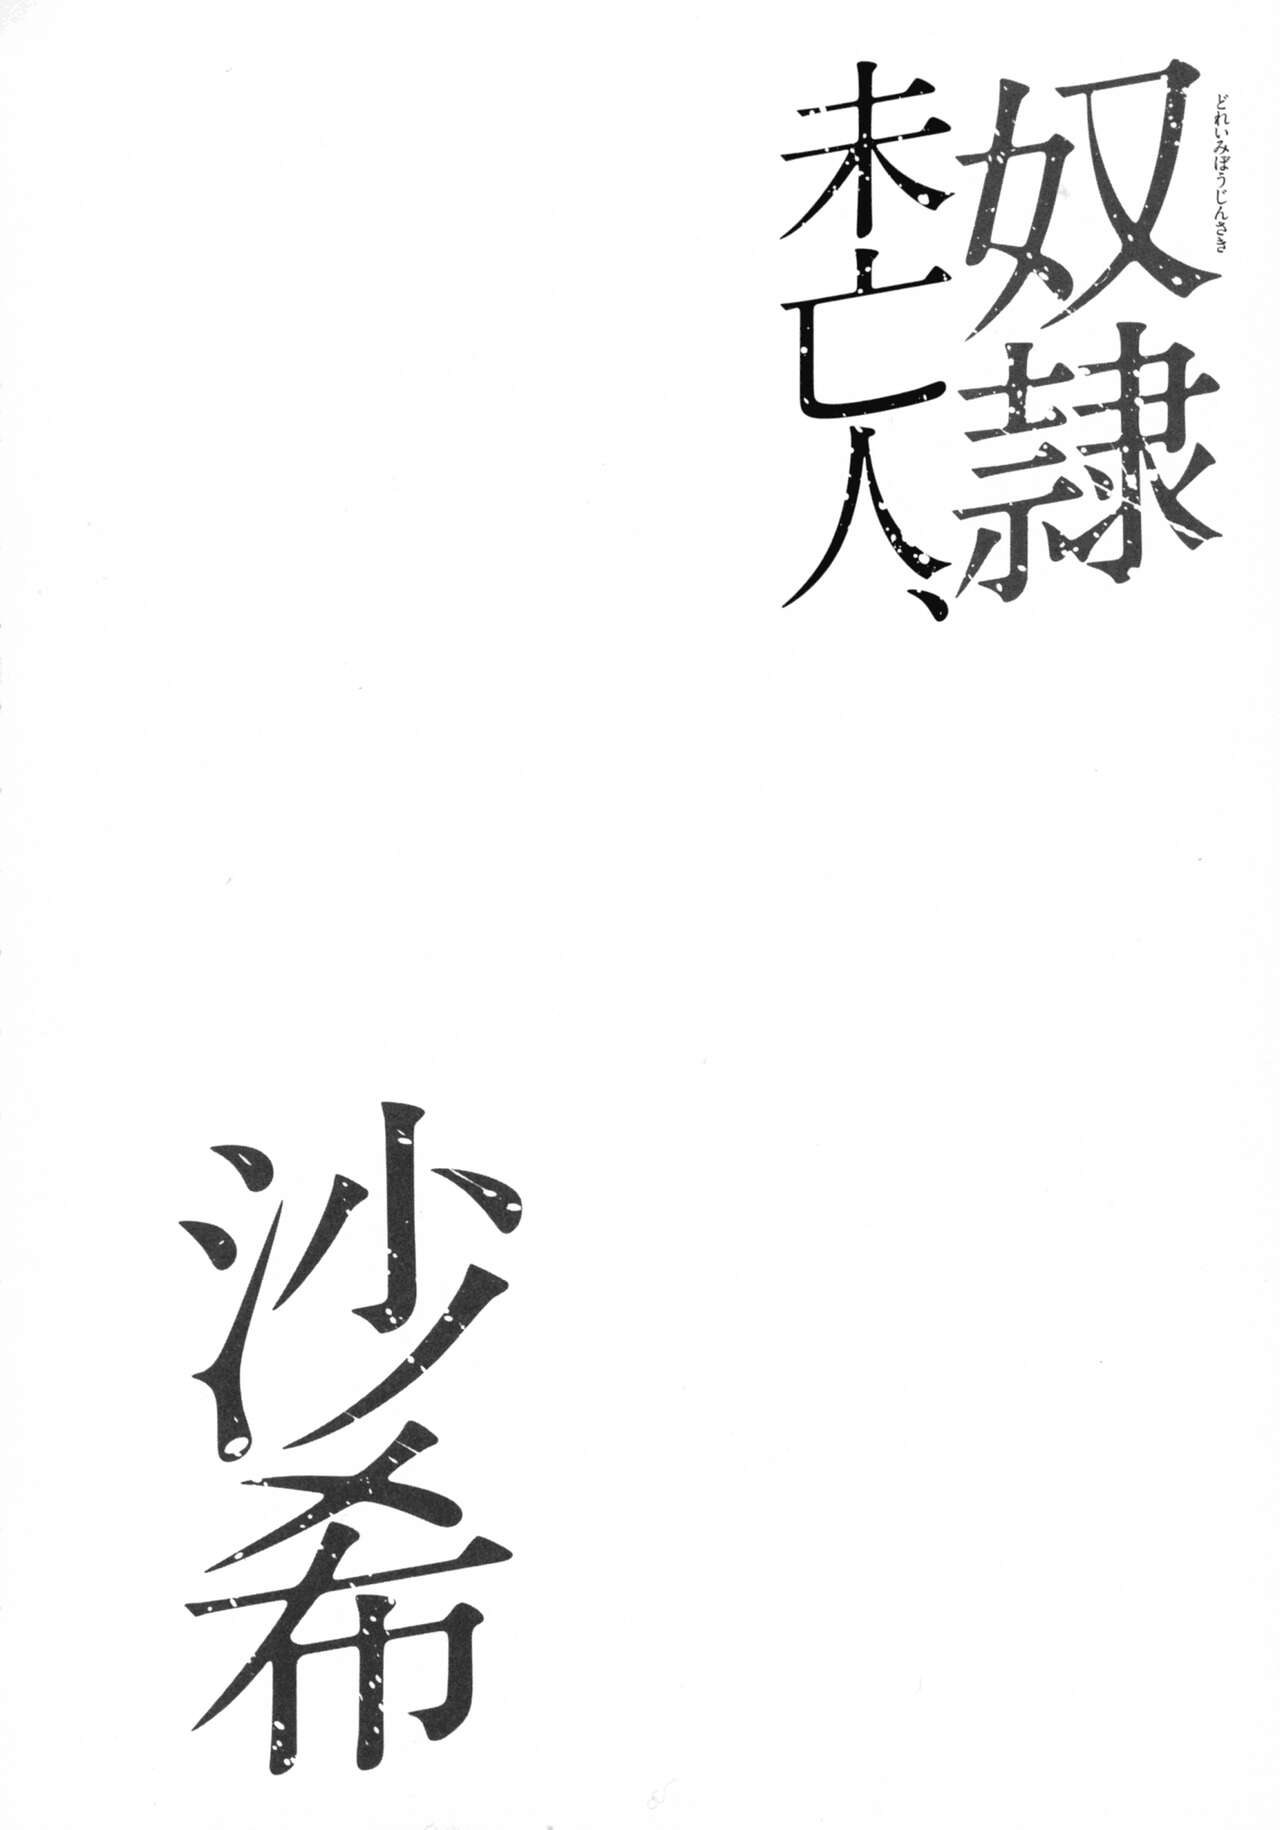 どれいみぼうじんさき
奴隷
未亡人、
沙希